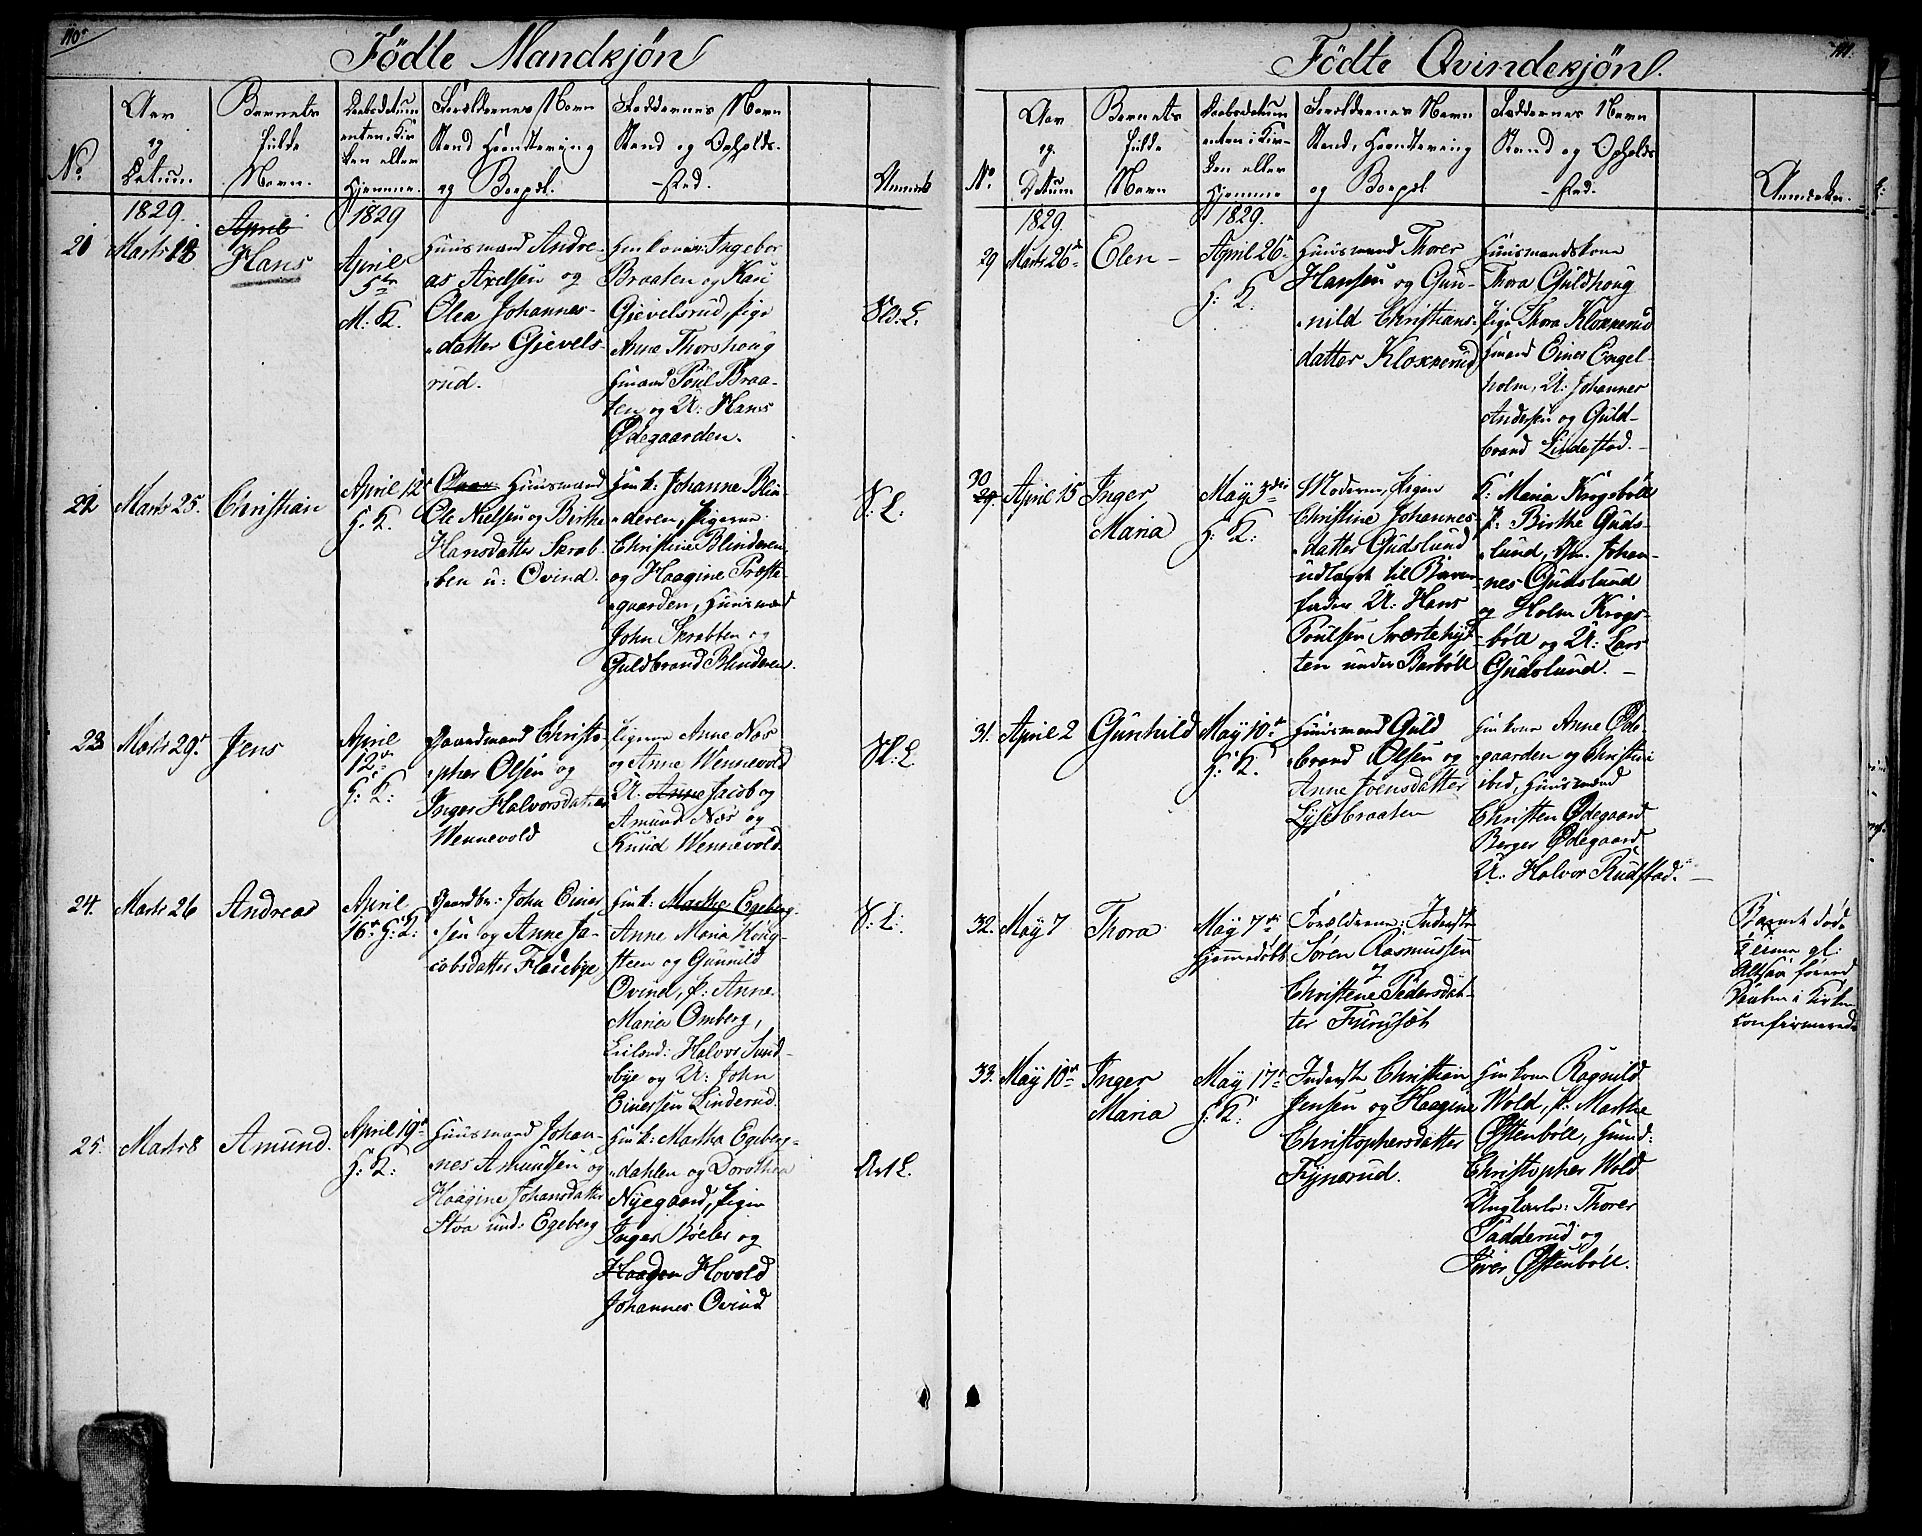 110.
Födte Mandkjön
No.
Aar
og
Datum.
Barnets
fulde
Navn.
Daabsdatum
enten i Kir-
ken eller
hjemme.
Forældrenes Navn
Stand Haandtering
og Boepæl.
Faddernes Navn
Stand og Opholds-
-sted.
Anmærk
1829.
1829
21
Marts 18.
April
Hans
April
5te
M: K.
Huusmand Andre-
as Axelsen og
Olea Johannes-
datter Gjevels-
rud.
Huuskoner: Ingebor
Braaten og Kari
Gievelsrud, pige
Anne Thorshoug
Huusmand Poul Braa-
ten og U: Hans
Ødegaarden.
22
Marts 25.
Christian
April 12te
H: K.
Huusmand
Ole Nielsen og Birthe
Hansdatter Skrab-
ben u: Ovind.
Huusk: Johanne Blin-
deren, Pigerne
Christine Blinderen
og Haagine Præste-
gaarden, Huusmænd
John Skrabben og
Guldbrand Blinderen.
S: L:
23
Marts 29.
Jens
April
12te
H: K:
Gaardmand Christo-
pher Olsen og
Inger Halvorsdatter
Wennevold
Pigerne Anne Næs
og Anne Wennevold
U: Anne Jacob og
Amund Næs og
Knud Wennevold.
24.
Marts 26
Andreas
April
16de H: K:
Gaardbr: John Einer-
sen og Anne Ja-
cobsdatter Fladebye
Huusk: Marthe Egeberg-
Anne Maria Houg-
steen og Gunnild
Ovind, p: Anne
Maria Omberg,
Leilænd: Halvor Sund-
bye og U: John
Einersen Linderud.
S: L:
25.
Marts 8
Amund.
April 19de
H: K:
Huusmand Johan-
nes Amundsen og
Haagine Johansdatter
Støa und: Egeberg
Huusk: Martha Egeberg-
dahlen og Dorothea
Nyegaard, Pigen
Inger Bøeler og
Haagen Hovold
Johannes Ovind
111.
Födte Qvindekjön.
No.
Aar
og
Datum
Barnets
fulde
Navn
Daabsdatum
enten i Kir-
ken eller
hjemme
Forældrenes Navn
Stand, Haandtering
og Boepæl
Faddernes Navn
Stand og Opholds
-sted.
Anmærkn.
1829.
1829.
29
Marts 26de
Elen -
April 26de
H: K.
Huusmand Thorer
Hansen og Gun-
nild Christians-
datter Kloxnerud
Huusmandskone
Thora Guldhoug
Pige Thora Kloxnerud
Huusmand Einer Engel-
holm, U: Johannes
Andersen og Guld-
brand Lindestad.-
30
29.
April 15
Inger
Maria
May 3die
H: K:
Moderen, Pigen
Christine Johannes-
datter Gudslund
udlagt til Barne-
fader U: Hans
Poulsen Sværtehyt-
ten under Barböll
K: Maria Krogsböll
p: Birthe Guds-
lund, Gm. Johan-
nes Gudslund
og Holm Krogs-
böll og U: Lars
Gudslund. -
31.
April 2
Gunhild
May 10de
H: K.
Huusmand Guld
brand Olsen og
Anne Joensdatter
Lysebraaten
Huuskone Anne Øde-
gaarden og Christine
ibid, Huusmænd
Christen Ødegaard
Berger Ødegaard
U: Halvor Rudstad. -
32.
May 7
Thora
May 7de
hjemmedöbt
Forældrene: Inderste
Sören Rasmussen
og
Christene Pedersdat-
ter Furusæt
Barnet döde
altsaa forend
Daaben i Kirken
confirmerede
33.
May 10de
Inger
Maria
May 17de
H: K:
Inderste Christian
Jensen og Haagine
Christophersdatter
Fynerud.
Huuskone Ragnild
Wold, p: Marthe
Østenböll, Huusmd:
Christopher Wold
Ungkarle: Thorer
Padderud og
Iver Østenböll.